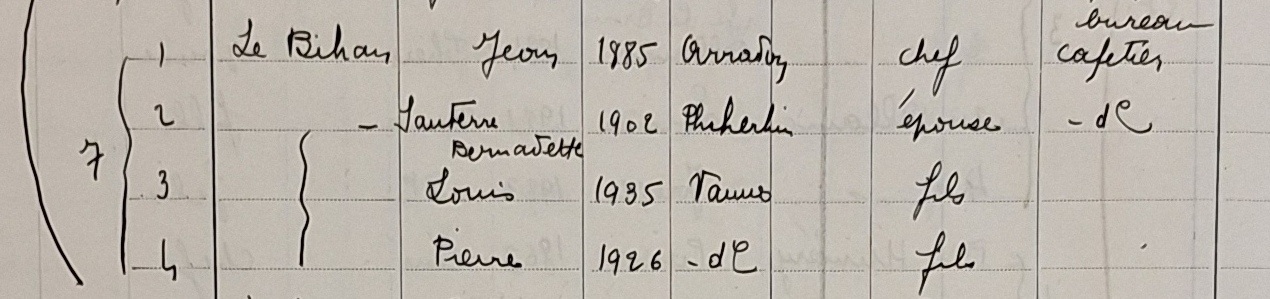 bureau
1 Le Bihan Jean 1885 Arradon chef cafetier
2 - Sauterre 1902 épouse - d°
Bernadette
7
3 Louis 1935 Vannes fils
4 Pierre 1926 - d° fils